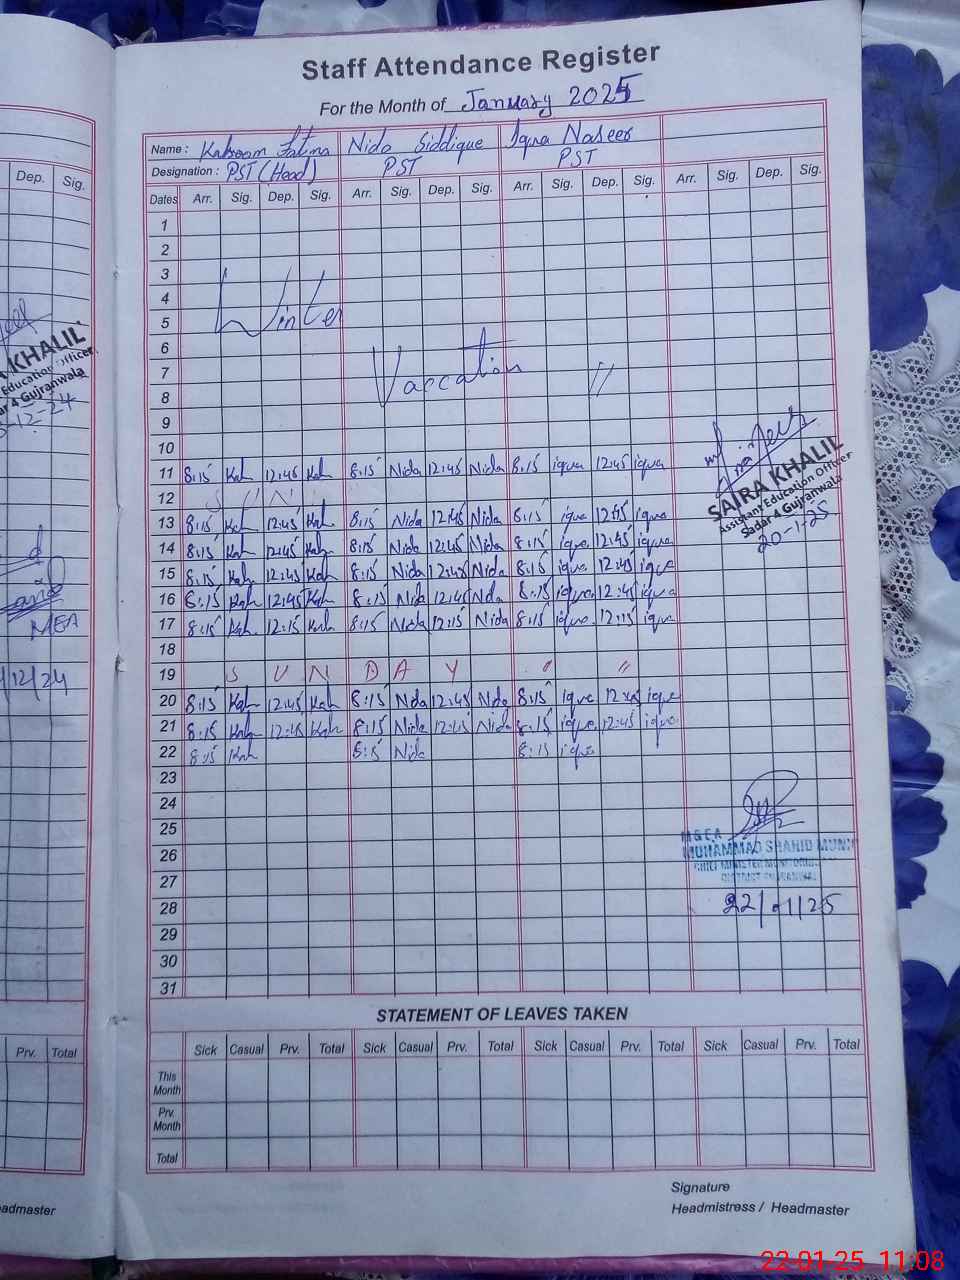 Staff Attendance Register
For the Month of January 2025
Name : Kalsoom Fatima Nida Siddique Iqra Naseer
Designation : PST (Head) PST PST
Dep. Sig.
Dates Arr. Sig. Dep. Sig. Arr. Sig. Dep. Sig. Arr. Sig. Dep. Sig. Arr. Sig. Dep. Sig.
1
2
3
4
Winter
5
6
7
Vaccation "
8
9
10
11 8:15 Kah 12:45 Kah 8:15 Nida 12:45 Nida 8:15 iqra 12:45 iqra
12 S U N
13 8:15 Kah 12:45 Kah 8:15 Nida 12:45 Nida 8:15 iqra 12:45 iqra
14 8:15 Kah 12:45 Kah 8:15 Nida 12:45 Nida 8:15 iqra 12:45 iqra
15 8:15 Kah 12:45 Kah 8:15 Nida 12:45 Nida 8:15 iqra 12:45 iqra
16 8:15 Kah 12:45 Kah 8:15 Nida 12:45 Nida 8:15 iqra 12:45 iqra
17 8:15 Kah 12:15 Kah 8:15 Nida 12:15 Nida 8:15 iqra 12:15 iqra
18
19 S U N D A Y " "
20 8:15 Kah 12:45 Kah 8:15 Nida 12:45 Nida 8:15 iqra 12:45 iqra
21 8:15 Kah 12:45 Kah 8:15 Nida 12:45 Nida 8:15 iqra 12:45 iqra
22 8:15 Kah 8:15 Nida 8:15 iqra
23
24
25
26
27
28
29
30
31
SAIRA KHALIL
Assistant Education Officer
Sadar 4 Gujranwala
20-1-25
M & E A
MUHAMMAD SHAHID MUNIR
CHIEF MINISTER MONITORING
DISTRICT GUJRANWALA
22/01/25
A KHALIL
Education Officer
ar 4 Gujranwala
-12-24
MEA
/12/24
STATEMENT OF LEAVES TAKEN
Prv. Total
Sick Casual Prv. Total Sick Casual Prv. Total Sick Casual Prv. Total Sick Casual Prv. Total
This Month
Prv. Month
Total
Signature
Headmistress / Headmaster
eadmaster
22-01-25 11:08